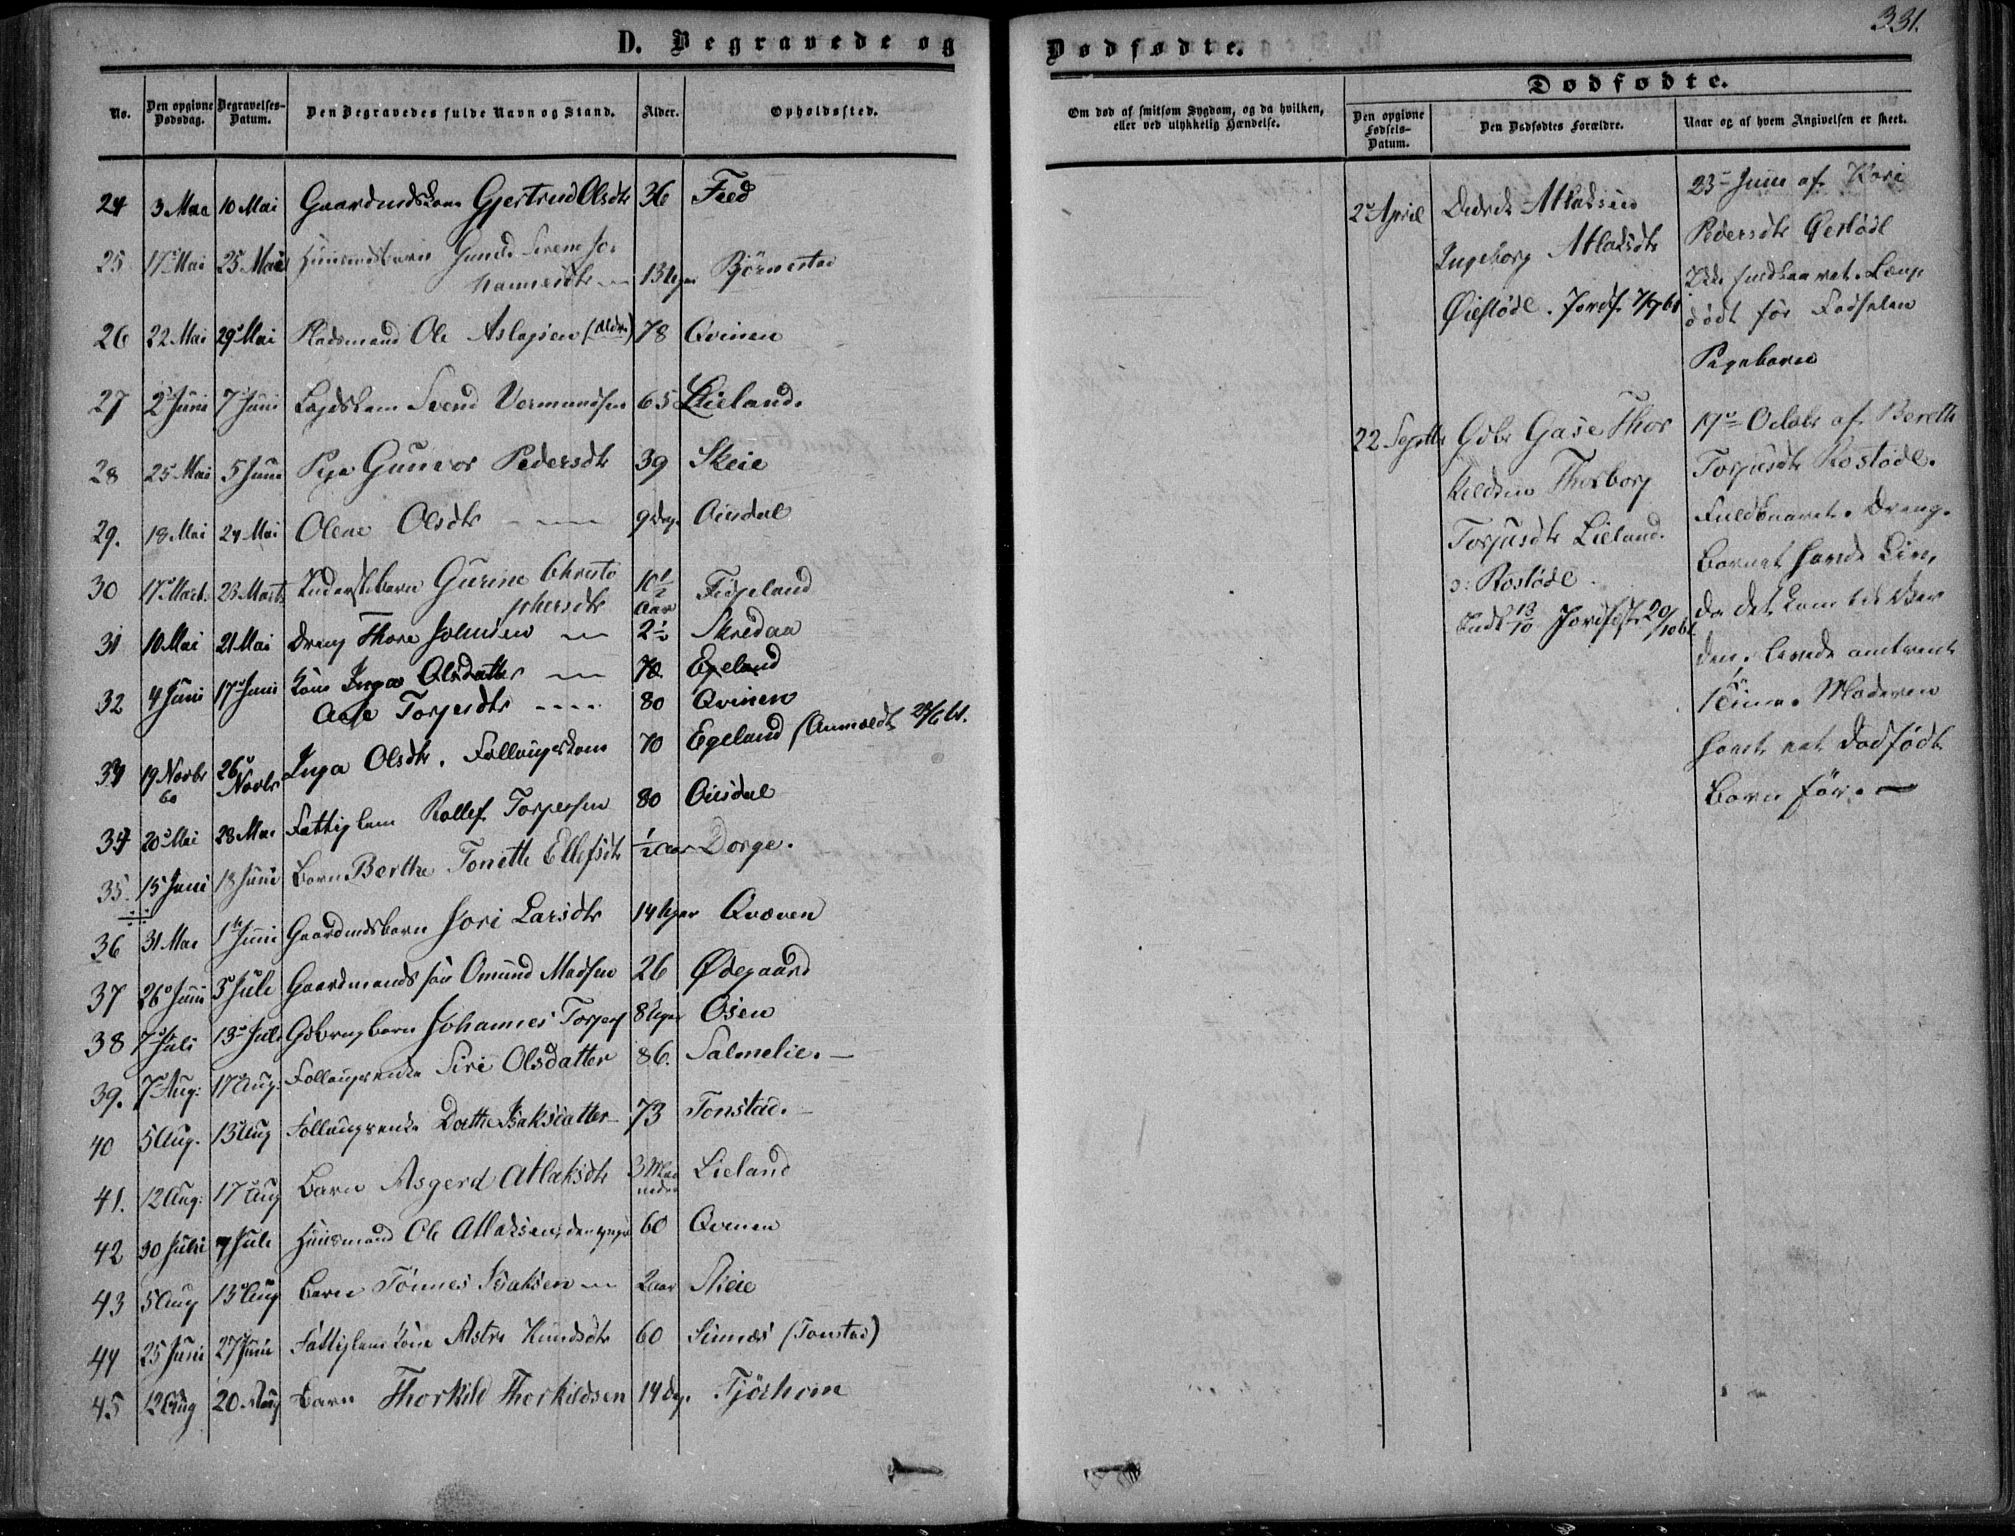 331.
D. Begravede og
Dødfødte.
No.
Den opgivne Dødsdag.
Begravelses-Datum.
Den Begravedes fulde Navn og Stand.
Alder.
Opholdssted.
24 3 Mai 10 Mai Gaardmdskone Gjertrud Olsdtr 36 Fied
25 17 Mai 25 Mai Huusmdsbarn Gund Serene Jo
hannesdtr 13 Uger Bjørnestad
26 22 Mai 29 Mai Pladsmand Ole Aslagsen (Ældre) 78 Qvinen
27 2 Juni 7 Juni Lægdslem Svend Vermundsen 65 Lieland.
28 25 Mai 5 Juni Pige Gunvor Pedersdtr 39 Skeie
29. 18 Mai 24 Mai Olene Olsdtr 9 Dag. Ousdal
30 17 Marts 23 Marts Inderstbarn Gurine Christo
phersdtr 10½ Aar Fidjeland
31 10 Mai 21 Mai Dreng Thore Johnsen 2½ Skredaa
Kone Inga Olsdatter 70 Egeland
32 4 Juni 17 Juni Aase Torjersdtr 80 Qvinen
34 19 Novbr 60 26 Novbr Inga Olsdtr. Follaugskone 70 Egeland (Anmeldt 28/6 61.
34 20 Mai 28 Mai Fattiglem Rollef Torgersen 80 Ousdal
35. 15 Juni 18 Juni Barn Berthe Tonette Ellefsdtr ½ Aar Dorge.
36 31 Mai 1 Juni Gaardmdsbarn Jori Larsdtr 14 Uger Qvæven
37 26 Juni 3 Juli Gaardmands søn Omund Madsen 26 Ødegaard
38 7 Juli 13 Juli Gdbrugbarn Johannes Torgers 8 Uger Osen
39. 7 Aug: 17 Aug. Follaugsenke Siri Olsdatter 86. Salmelie.
40 5 Aug. 13 Aug Follaugsenke Dorthe Isaksdatter 73 Tonstad.
41. 12 Aug: 17 Aug Barn Asgerd Atlaksdtr 3 Maa
neder Lieland
42 30 Juni 7 Juli Huusmand Ole Atlaksen, den yngre 60 Qvinen
43 5 Aug 13 Aug Barn Tönnes Isaksen 2 aar Skeie
44 25 Juni 27 Juni Fattiglem Kone Astri Knudsdtr 60 Sinnæs (Tonstad)
45 12 Aug 20 Aug Barn Thorkild Thorkildsen 14 Dag. Tjörhom
Om død af smitsom Sygdom, og da hvilken,
eller ved ulykkelig Hændelse.
Dødfødte.
Den opgivne Fødsels-Datum.
Den Dødfødtes Forældre.
Naar og af hvem Angivelsen er skeet.
2 April
Didrik Atlaksen
Ingeborg Atlaksdtr
Öiestöde. Jordf. 7/7 61
23 Juni af Kari
Pedersdtr
Ikke fuldbaaret. Længe
dødt før Fødselen
Pigebarn
22 Septbr
Gdbr Gase Thor
keldsen Thorborg
Torjusdtr Lieland.
ɔ: Rostöde.
Født 13/10 Jordfæst 20/10 61
19 Octobr af Berethe
Torjusdtr Rostöde.
Fuldbaaret. Dreng.
Barnet havde Liv,
da det kom til Ver
den, levede omtrent
1 Time. Moderen
havt et dødfødt
Barn før.